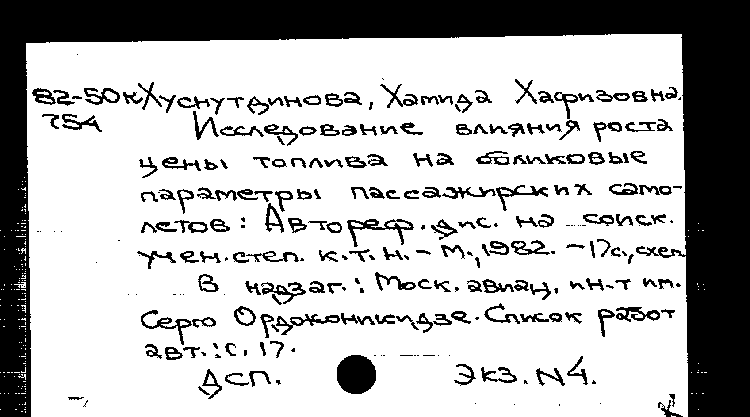 82-50к Хуснутдинова, Хамида Хафизовна.
754 Исследование влияния роста
цены топлива на обликовые
параметры пассажирских само-
летов: Автореф. дис. на соиск.
учен. степ. к.т.н. - М., 1982. - 17с., схем.
В надзаг.: Моск. авиац. ин-т им.
Серго Орджоникидзе. Список работ
авт.: с. 17.
ДСП. Экз. N4.